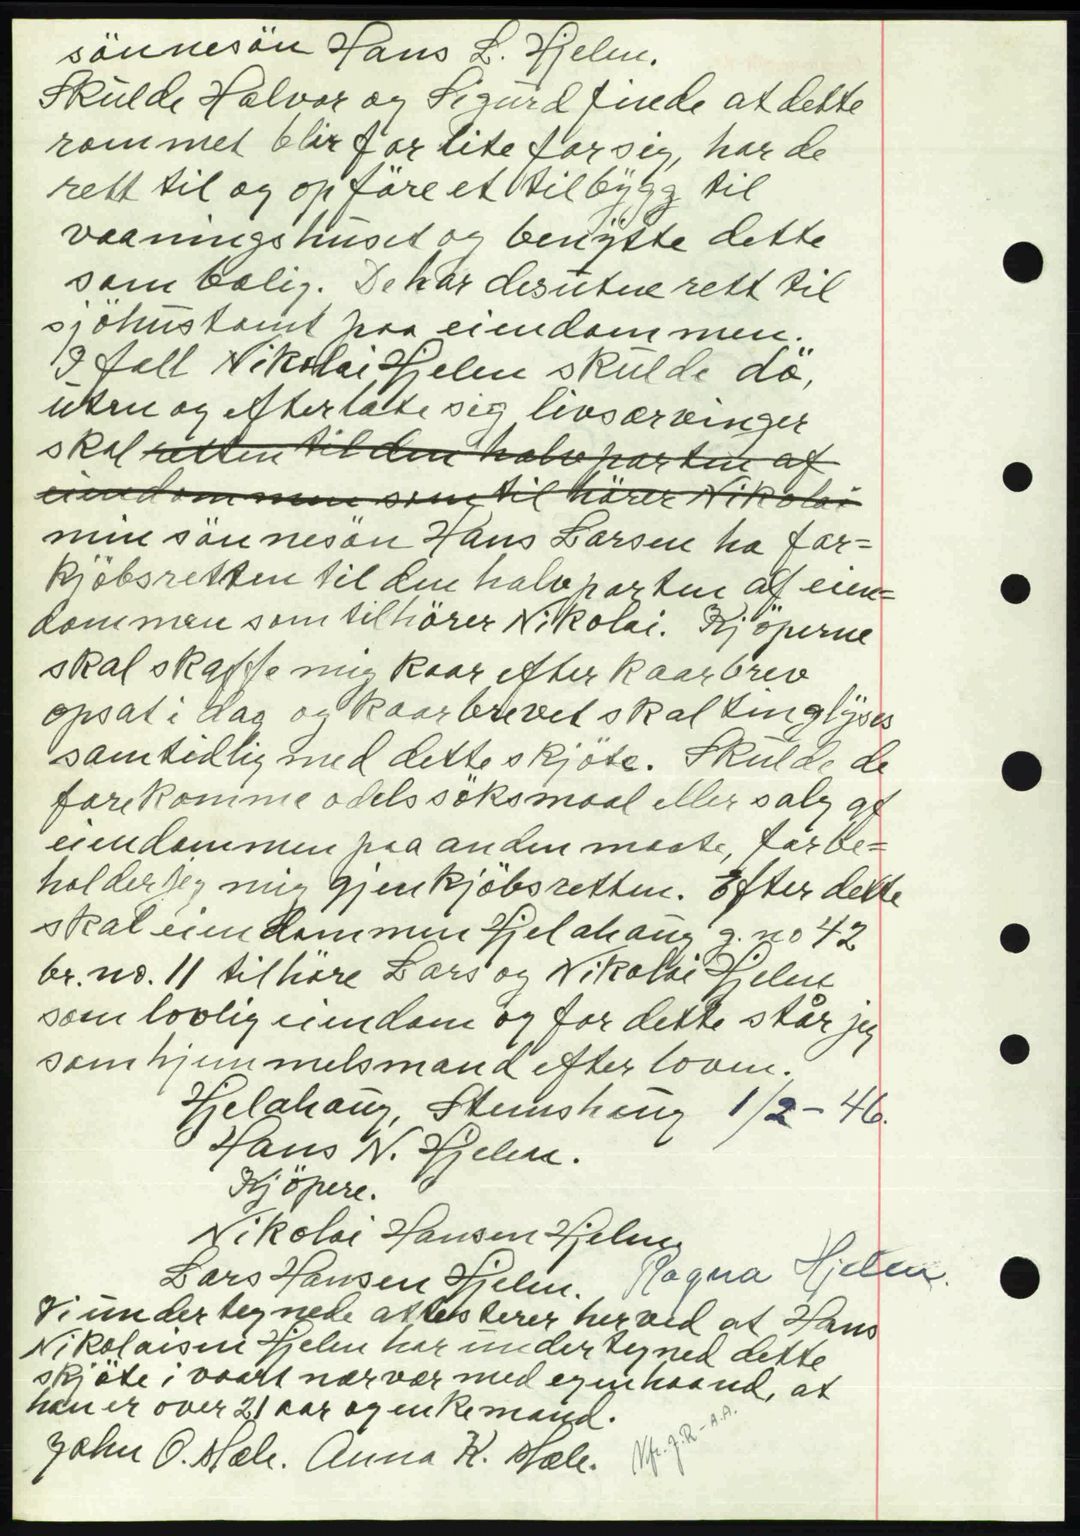 sönnesön Hans L. Hjelm.
Skulde Halvor og Sigurd finde at dette
rommet blir for lite for sig, har de
rett til og opföre et tilbygg til
vaaningshuset og benytte dette
som bolig. De har desuten rett til
sjöhustomt paa eiendommen.
I fall Nikolai Hjelm skulde dö,
uten og efterlate sig livsarvinger
skal retten til den halvparten af
eiendommen som til hörer Nikolai
min sönnesön Hans Larsen ha for=
kjöbsretten til den halvparten af eien=
dommen som tilhörer Nikolai. Kjöperne
skal skaffe mig kaar efter kaarbrev
opsat i dag og kaarbrevet skal tinglyses
samtidlig med dette skjöte. Skulde de
forekomme odelssöksmaal eller salg af
eiendommen paa anden maate, forbe=
holder jeg mig gjenkjöbsretten. Efter dette
skal eiendommen Hjelahaug g. no 42
br. no. 11 tilhöre Lars og Nikolai Hjelm
som lovlig eiendom og for dette står jeg
som hjemmelsmand efter loven.
Hjelahaug, Stemshaug 1/2 - 46.
Hans N. Hjelm.
Kjöpere.
Nikolai Hansen Hjelm.
Lars Hansen Hjelm. Ragna Hjelm.
Vi undertegnede attesterer herved at Hans
Nikolaisen Hjelm har undertegned dette
skjöte i vaart nærvær med egen haand, at
han er over 21 aar og enkemand.
John O. Mæle. Anna K. Mæle.